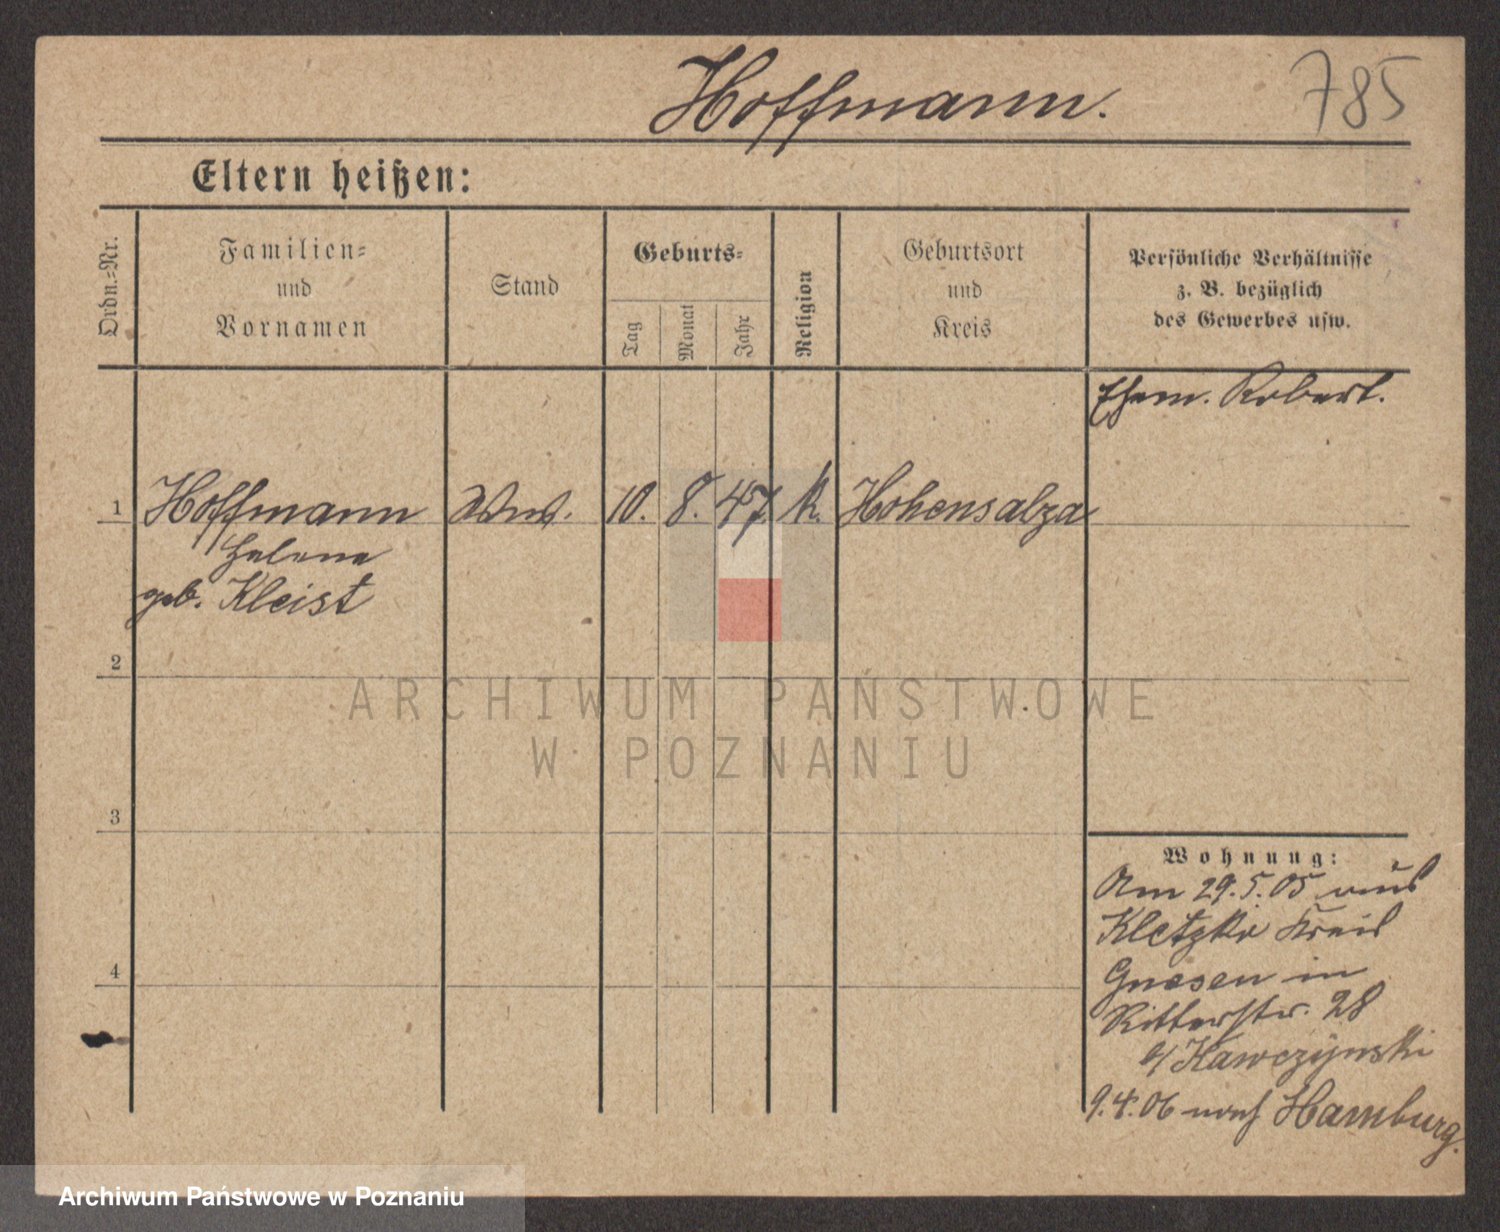 Hoffmann.
785
Eltern heißen:
Ordn.-Nr.
Familien-
und
Vornamen
Stand
Geburts-
Tag
Monat
Jahr
Religion
Geburtsort
und
Kreis
Persönliche Verhältnisse
z. B. bezüglich
des Gewerbes usw.
Ehem. Robert.
1 Hoffmann Wwe. 10. 8. 47 k. Hohensalza
Helene
geb. Kleist
2
3
4
Wohnung:
Am 29.5.05 aus
Kletzko Kreis
Gnesen in
Ritterstr. 28
b/ Kawczynski
9.4.06 nach Hamburg.
ARCHIWUM PAŃSTWOWE
W POZNANIU
Archiwum Państwowe w Poznaniu